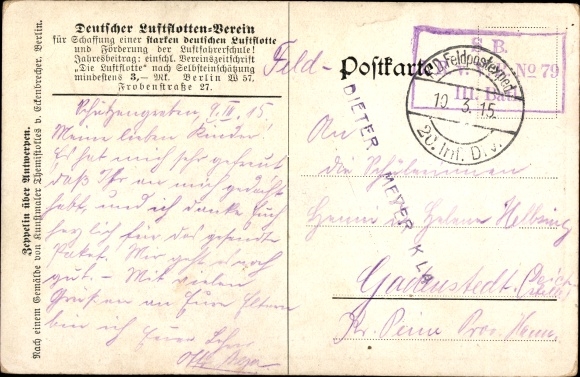 Deutscher Luftflotten-Verein
für Schaffung einer starken deutschen Luftflotte
und Förderung der Luftfahrerschule!
Jahresbeitrag: einschl. Vereinszeitschrift
„Die Luftflotte" nach Selbsteinschätzung
mindestens 3,— Mk. Berlin W 57,
Frobenstraße 27.
Schützengraben 9. III. 15.
Meine lieben Kinder!
Es hat mich sehr gefreut,
daß Ihr an mich gedacht
habt, und ich danke Euch
herzlich für das gesandte
Paket. Mir geht es noch
gut. – Mit vielen
Grüßen an Eure Eltern
bin ich Euer Lehrer
Otto
Zeppelin über Antwerpen.
Nach einem Gemälde von Kunstmaler Themistokles v. Eckenbrecher, Berlin.
Feld-
Postkarte
S. B.
No 79
III. Bat
Feldpostexped.
10. 3. 15.
20. Inf. D.
DIETER MEYER KLA
An
die Schülerinnen
Henni u. Helene Helbsing
Gadenstedt.
Kr. Peine Prov. Hann.